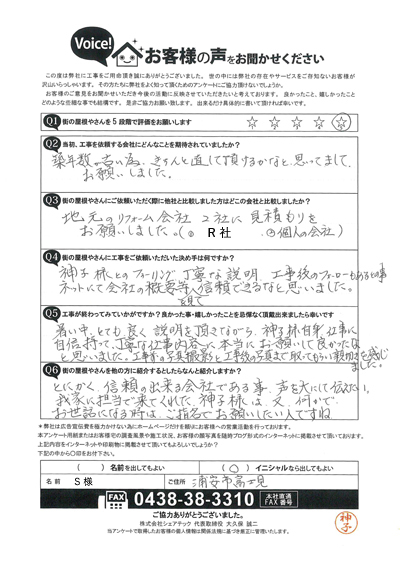 Voice!
お客様の声をお聞かせください
この度は弊社に工事をご用命頂き誠にありがとうございました。世の中には弊社の存在やサービスをご存知ないお客様が
沢山いらっしゃいます。その方たちに弊社をよく知って頂くためのアンケートにご協力頂けないでしょうか。
お客様のご意見をお聞かせいただき今後の活動に反映させていただきたいと考えております。良かったこと、嬉しかったこと
どのような些細な事でも結構です。是非ご協力お願い致します。出来るだけ具体的に書いて頂ければ幸いです。
Q1 街の屋根やさんを5段階で評価をお願いします ☆ ☆ ☆ ☆ ☆
Q2 当初、工事を依頼する会社にどんなことを期待されていましたか?
築年数が古い為、きちんと直して頂けるかなと思ってまして、
お願いしました。
Q3 街の屋根やさんにご依頼いただく際に他社と比較しました方はどこの会社と比較しましたか?
地元のリフォーム会社 2社に見積もりを
お願いしました。(① R社 ②個人の会社)
Q4 街の屋根やさんに工事をご依頼いただいた決め手は何ですか?
神子様とのフィーリング、丁寧な説明、工事後のフォローもある事
ネットにて会社の概要等を見て信頼できるなと思いました。
Q5 工事が終わってみていかがですか?良かった事・嬉しかったことを忌憚なく頂戴出来ましたら幸いです
暑い中、とても良く説明を頂きながら、神子様自身仕事に
自信持って、丁寧な仕事内容で、本当にお願いして良かったな
と思いました。工事前の写真撮影と工事後の写真まで取ってもらい親切さを感じ
ました。
Q6 街の屋根やさんを他の方に紹介するとしたらなんと紹介しますか?
とにかく、信頼の出来る会社である事、声を大にして伝えたい。
我家に担当で来てくれた、神子様は、又、何かで
お世話になる時は、ご指名でお願いしたい人ですね
＊弊社は広告宣伝費を極力かけない為にホームページだけを頼りにお客様への営業活動を行っております。
本アンケート用紙またはお客様宅の調査風景や施工状況、お客様の顔写真を随時ブログ形式のインターネットに掲載させて頂いております。
上記内容をインターネットや印刷物に掲載させて頂いてもよろしいでしょうか?
下記の中から〇印をお付下さい。
( ) 名前を出してもよい (〇) イニシャルなら出してもよい
S様 ご住所 浦安市富士見
FAX 0438-38-3310 本社直通 FAX番号
ご協力ありがとうございました。
株式会社シェアテック 代表取締役 大久保 誠二
当アンケートで取得したお客様の個人情報は関係法規に基づき厳正に管理いたします。
神子